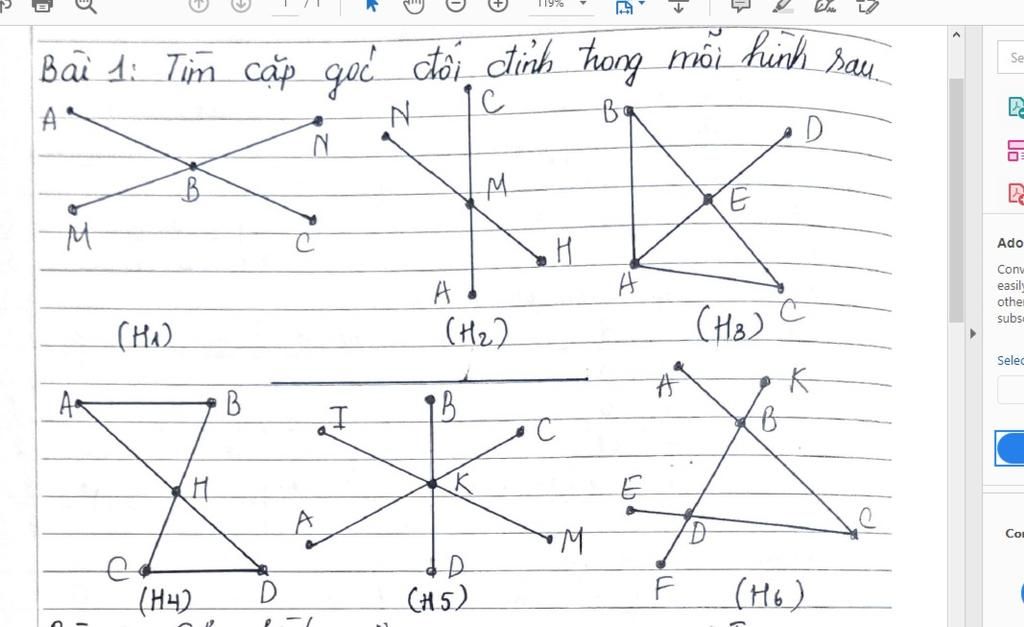 1 / 1
119%
Bài 1: Tìm cặp góc đối đỉnh trong mỗi hình sau.
A N B M C
N C M H A
B D E A C
(H1) (H2) (H3)
A B H C D
I B C K A M D
A K B E D C F
(H4) (H5) (H6)
Se
Ado
Conv
easily
other
subsc
Selec
Cor